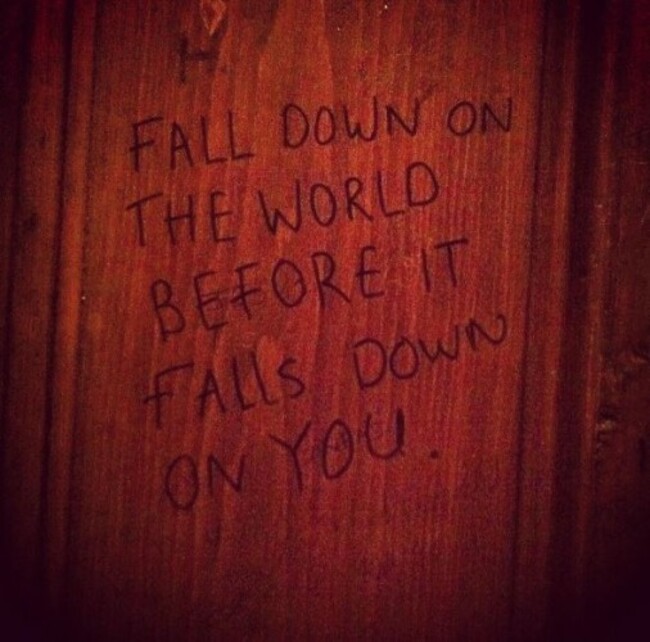 FALL DOWN ON
THE WORLD
BEFORE IT
FALLS DOWN
ON YOU.